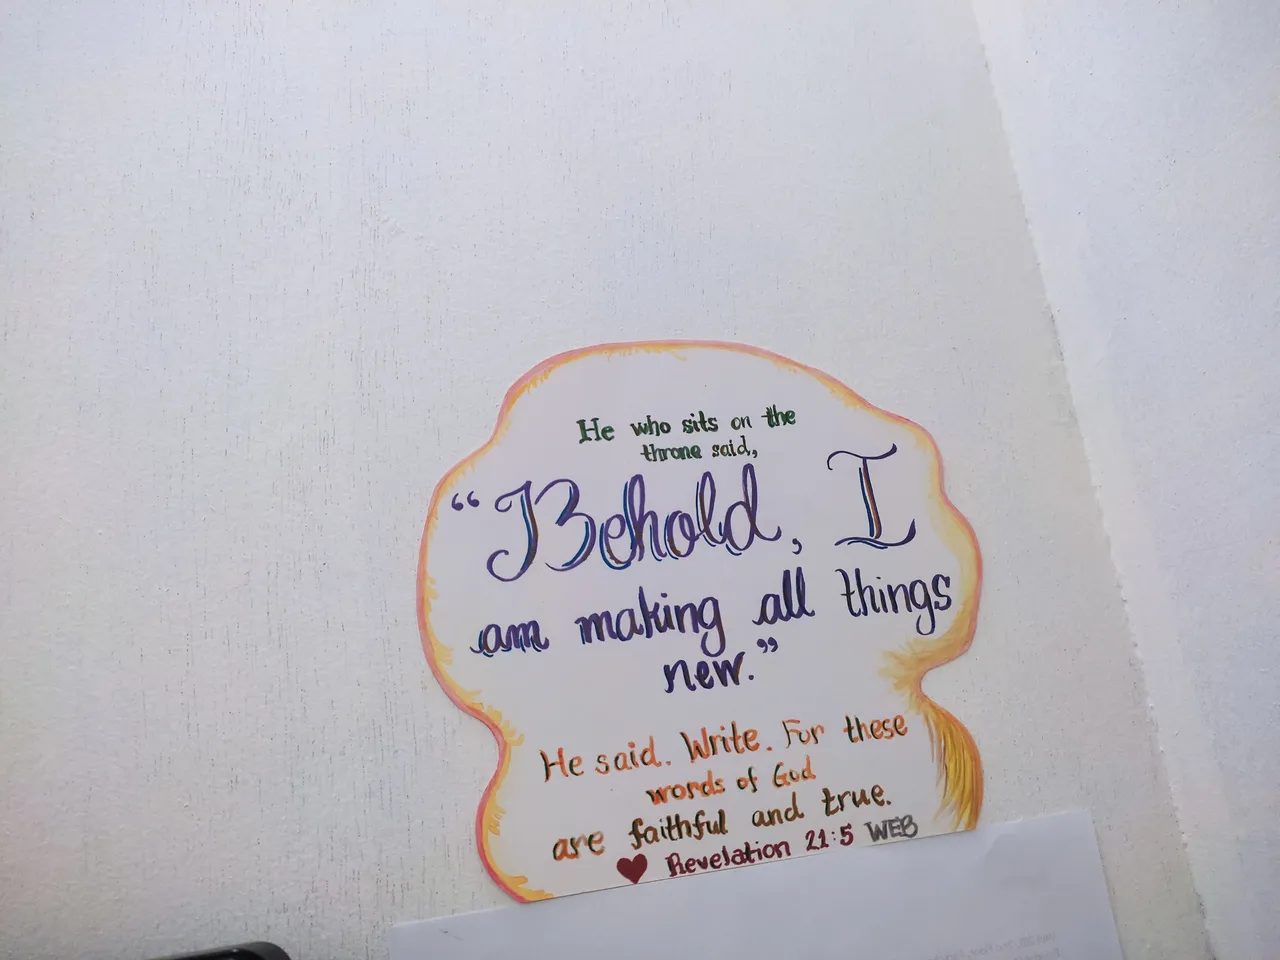 He who sits on the
throne said,
“Behold, I
am making all things
new.”
He said. Write. For these
words of God
are faithful and true.
Revelation 21:5 WEB